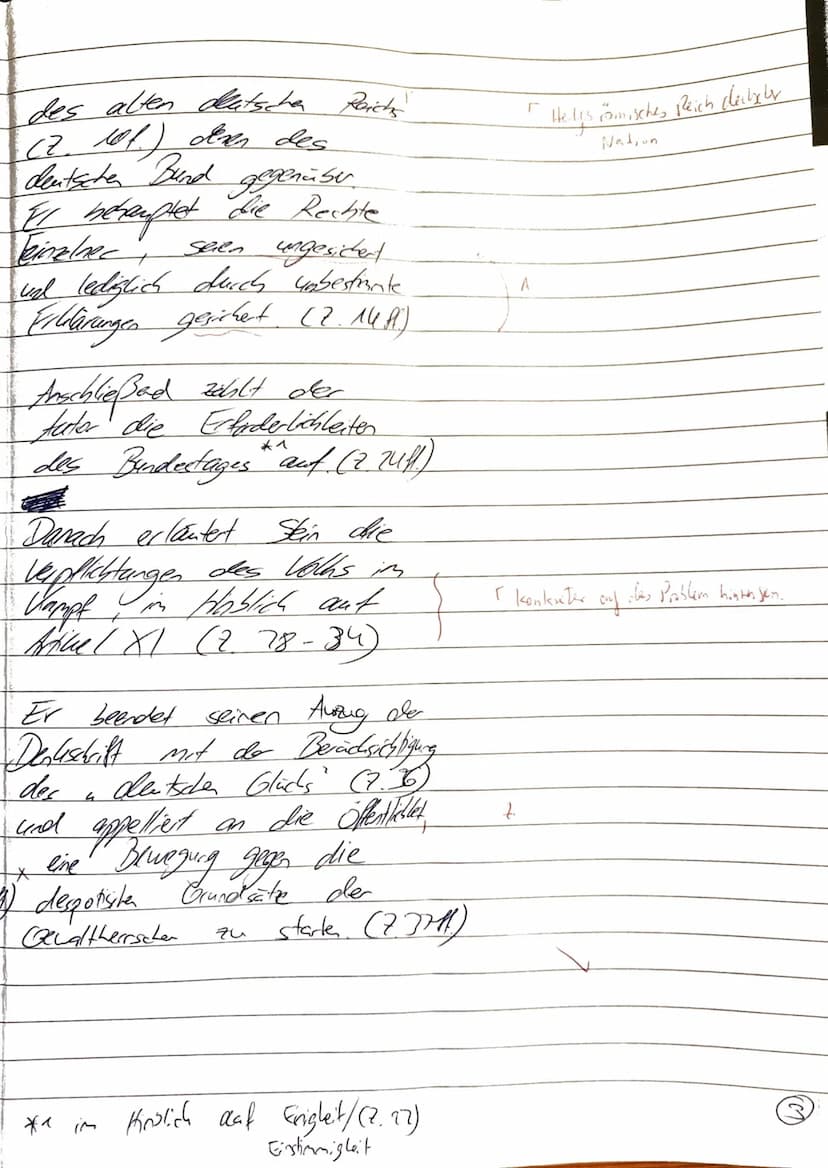 des alten deutschen Reichs'
(Z. 10f.) denen des
deutschen Bund gegenüber.
Er behauptet die Rechte
Einzelner, seien ungesichert
und lediglich durch unbestimmte
Erklärungen gesichert. (Z. 14ff.)
Anschließend zählt der
Autor die Erforderlichkeiten
des Bundestages *¹ auf. (Z. 24ff.)
Danach erläutert Stein die
Verpflichtungen des Volks im
Kampf, in Hinblich auf
Artikel XI (Z. 28-34)
Er beendet seinen Auszug der
Denkschrift mit der Berücksichtigung
des „deutschen Glücks" (Z. 36)
und appelliert an die Öffentlichkeit,
x eine Bewegung gegen die
despotischen Grundsätze der
Gewaltherrschen zu starten. (Z. 37ff.)
*¹ im Hinblich auf Einigkeit/(Z. 22)
Einstimmigkeit
3
Γ Heiliges römisches Reich deutscher
Nation
Γ konkreter auf das Problem hinweisen.